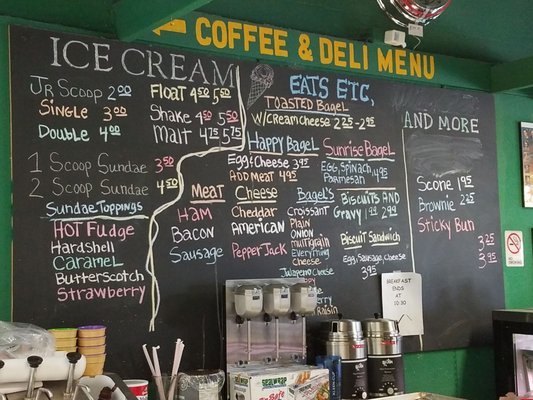 COFFEE & DELI MENU
ICE CREAM
Jr Scoop 2.00
Single 3.00
Double 4.00
Float 4.50 5.00
Shake 4.50 5.50
Malt 4.75 5.75
1 Scoop Sundae 3.50
2 Scoop Sundae 4.50
Sundae Toppings
Hot Fudge
Hardshell
Caramel
Butterscotch
Strawberry
EATS ETC,
TOASTED BAGEL
W/CREAM CHEESE 2.25 - 2.95
Happy Bagel
Egg & Cheese 3.95
ADD MEAT 4.95
Sunrise Bagel
Egg, Spinach,
Parmesan 4.95
Meat
Ham
Bacon
Sausage
Cheese
Cheddar
American
Pepper Jack
Bagel's
Croissant
Plain
Onion
multigrain
Everything
Cheese
Jalapeno Cheese
Raisin
Biscuits and
Gravy 1.99 2.99
Biscuit Sandwich
Egg, Sausage, Cheese
3.95
AND MORE
Scone 1.95
Brownie 2.25
Sticky Bun
3.25
3.95
NO SMOKING
BREAKFAST
ENDS AT
10:30